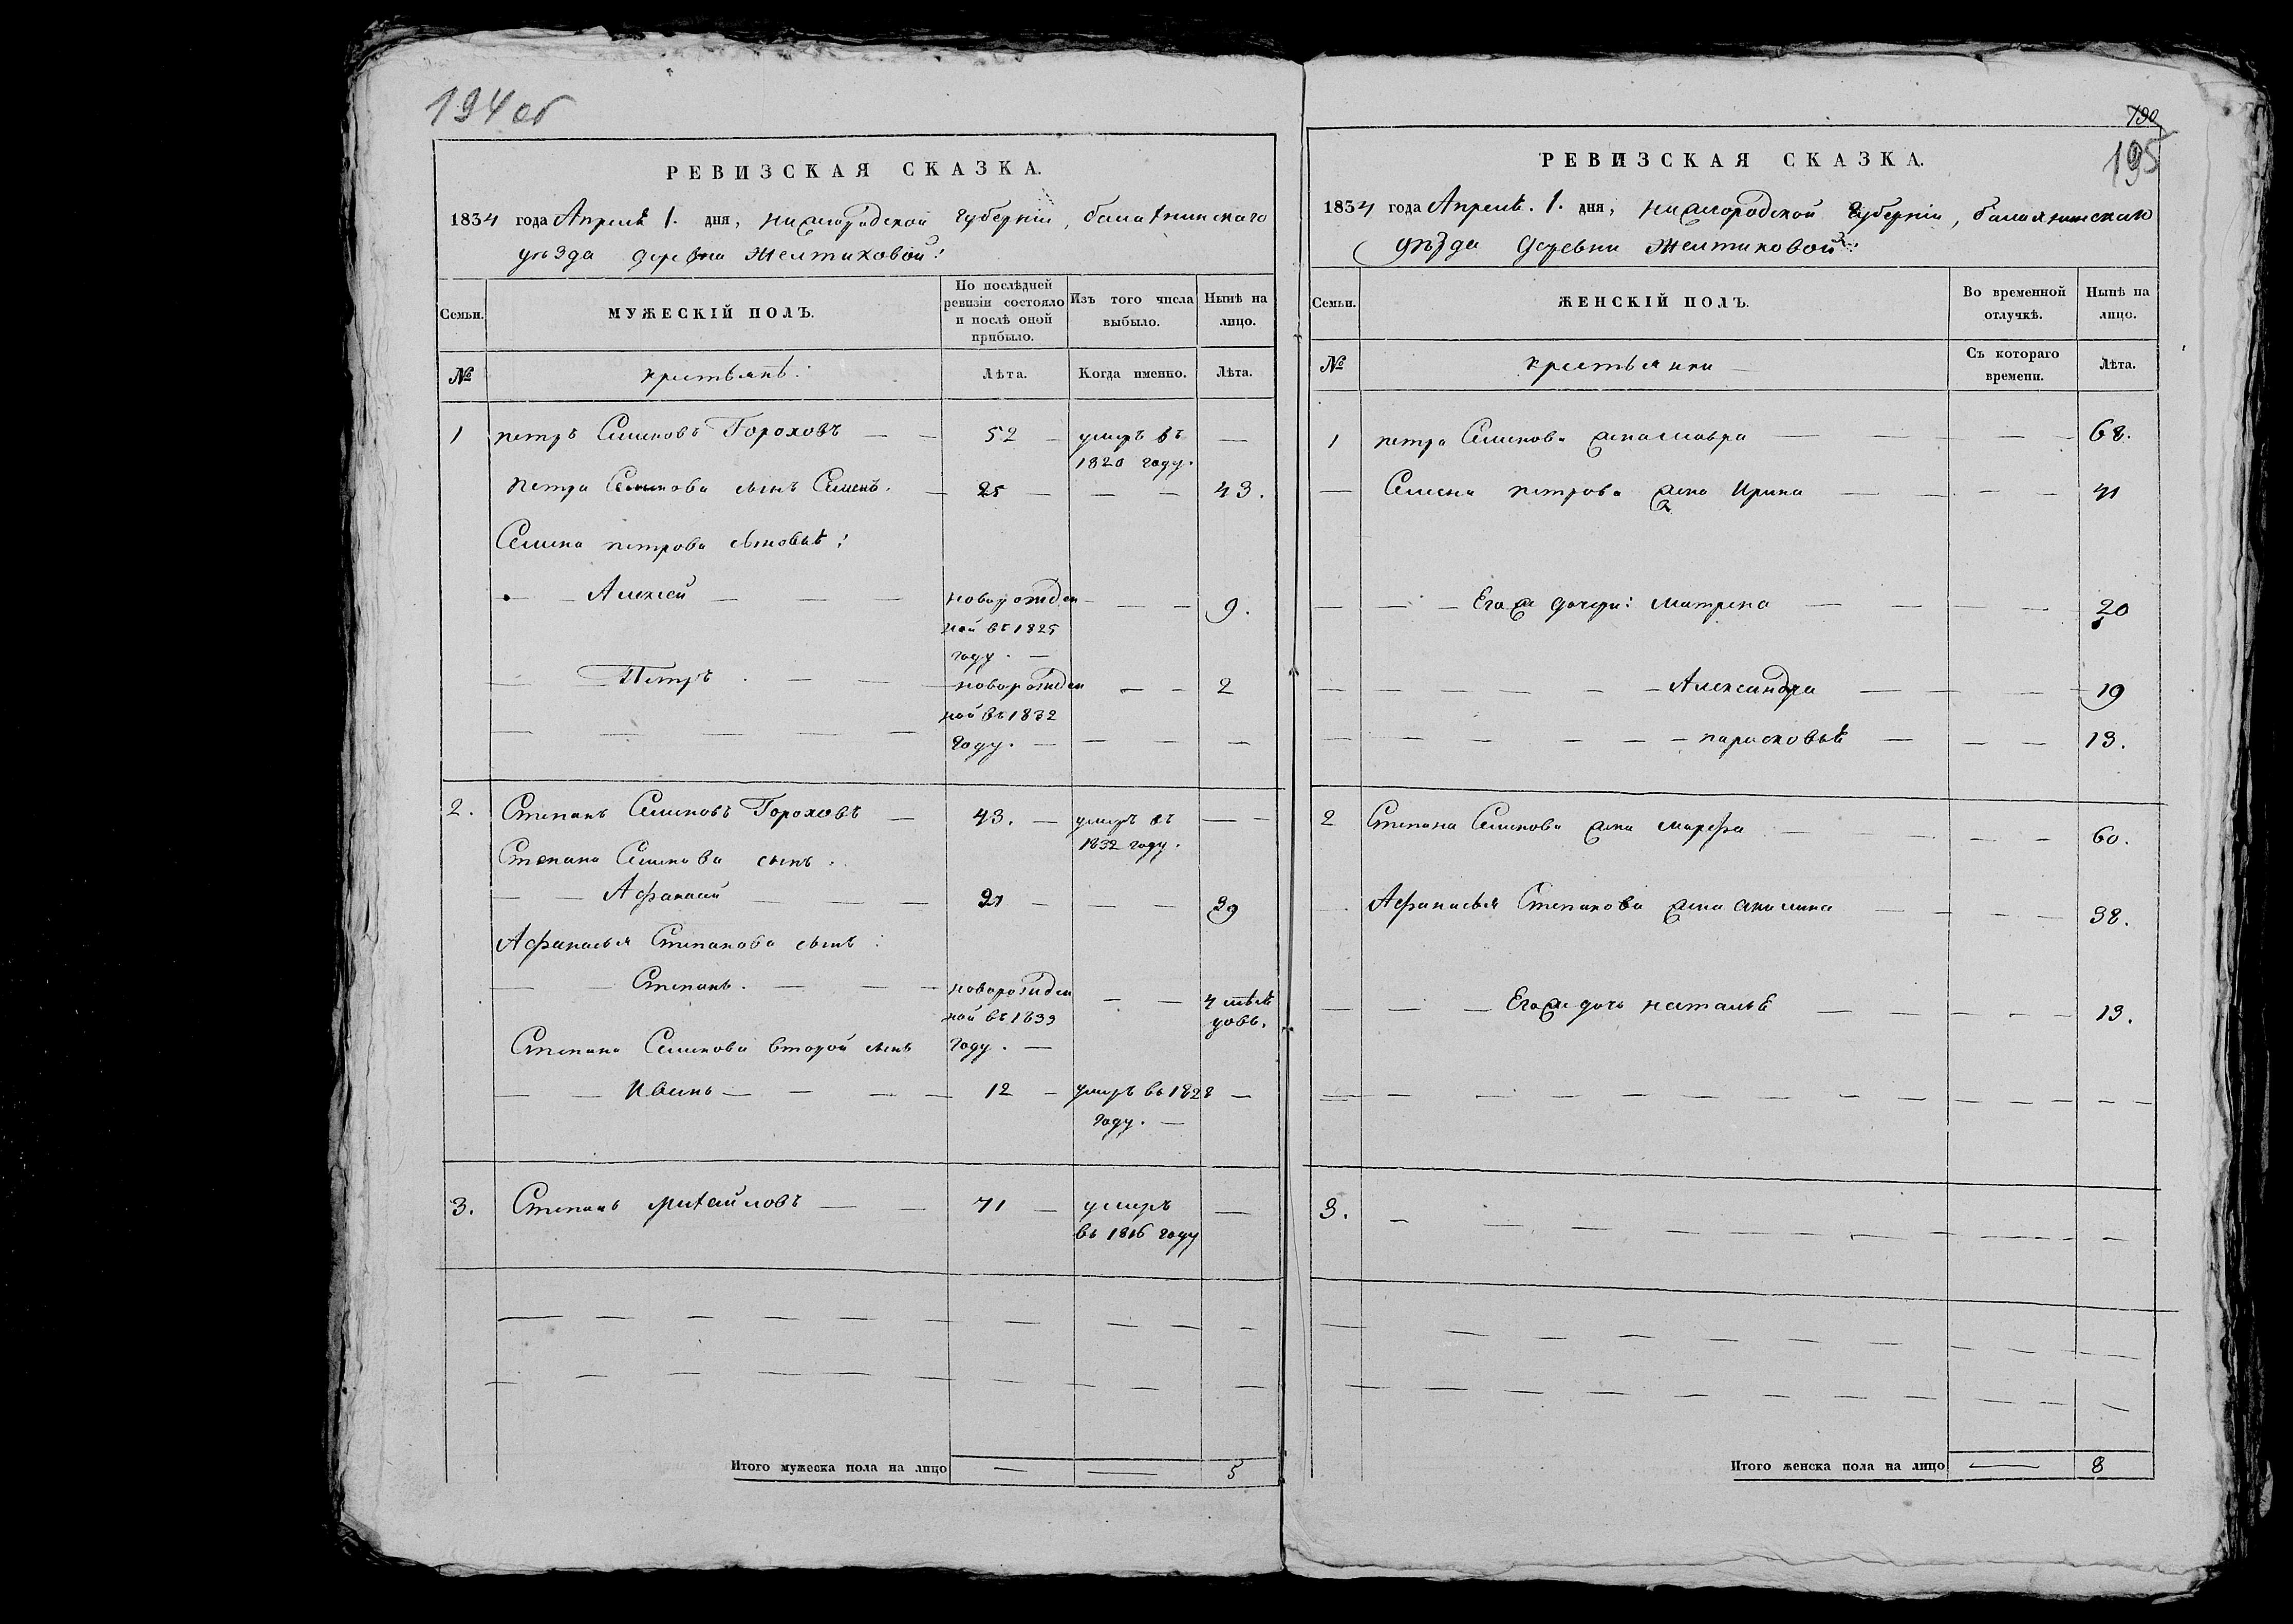 194 об
РЕВИЗСКАЯ СКАЗКА.
1834 года Апреля 1. дня, нижегородской губернiи, балахнинскаго
уѣзда деревни Желтиковой:
Семьи.
МУЖЕСКIЙ ПОЛЪ.
По послѣдней
ревизiи состояло
и послѣ оной
прибыло.
Изъ того числа
выбыло.
Нынѣ на
лицо.
№
крестьянѣ:
Лѣта.
Когда именно.
Лѣта.
1 петръ Семеновъ Гороховъ — — 52 — умеръ въ —
1820 году.
Петра Семенова сынъ Семенъ. — 25 — — — 43.
Семена петрова сыновья:
— Алексей — — — новорожден — — — 9.
ной въ 1825
году. —
— — Петръ — — — новорожден — — 2
ной въ 1832
— — — — — году. — — — —
2. Степанъ Семеновъ Гороховъ — 43. — умеръ въ — —
1832 году.
Степана Семенова сынъ:
— — Афанасей — — — 21 — — — 39
Афанасья Степанова сынъ:
— — Степанъ. — — — новорожден — — 4 месе
ной въ 1833 цовъ.
Степана Семенова второй сынъ году. —
— — Иванъ — — — — 12 — умеръ въ 1828 —
году. —
3. Степанъ михайловъ — — 71 — умеръ —
въ 1816 году
Итого мужеска пола на лицо — — 5
190
195
РЕВИЗСКАЯ СКАЗКА.
1834 года Апреля. 1. дня, нижегородской губернiи, балахнинскаго
уѣзда деревни Желтиковой:
Семьи.
ЖЕНСКIЙ ПОЛЪ.
Во временной
отлучкѣ.
Нынѣ на
лицо.
№
крестьянки
Съ котораго
времени.
Лѣта.
1 петра Семенова жена мавра — — — — — 68.
— Семена петрова жена Ирина — — — — 41
— — — Его же дочери: матрена — — — — 20
— — — — — — Александра — — — — 19
— — — — — — парасковья — — — 13.
2 Степана Семенова жена марфа — — — — — 60.
— Афанасья Степанова жена акилина — — — — 38.
— — — Его же дочь наталья — — — — — 13.
3. — — — — — — — — — —
Итого женска пола на лицо — 8